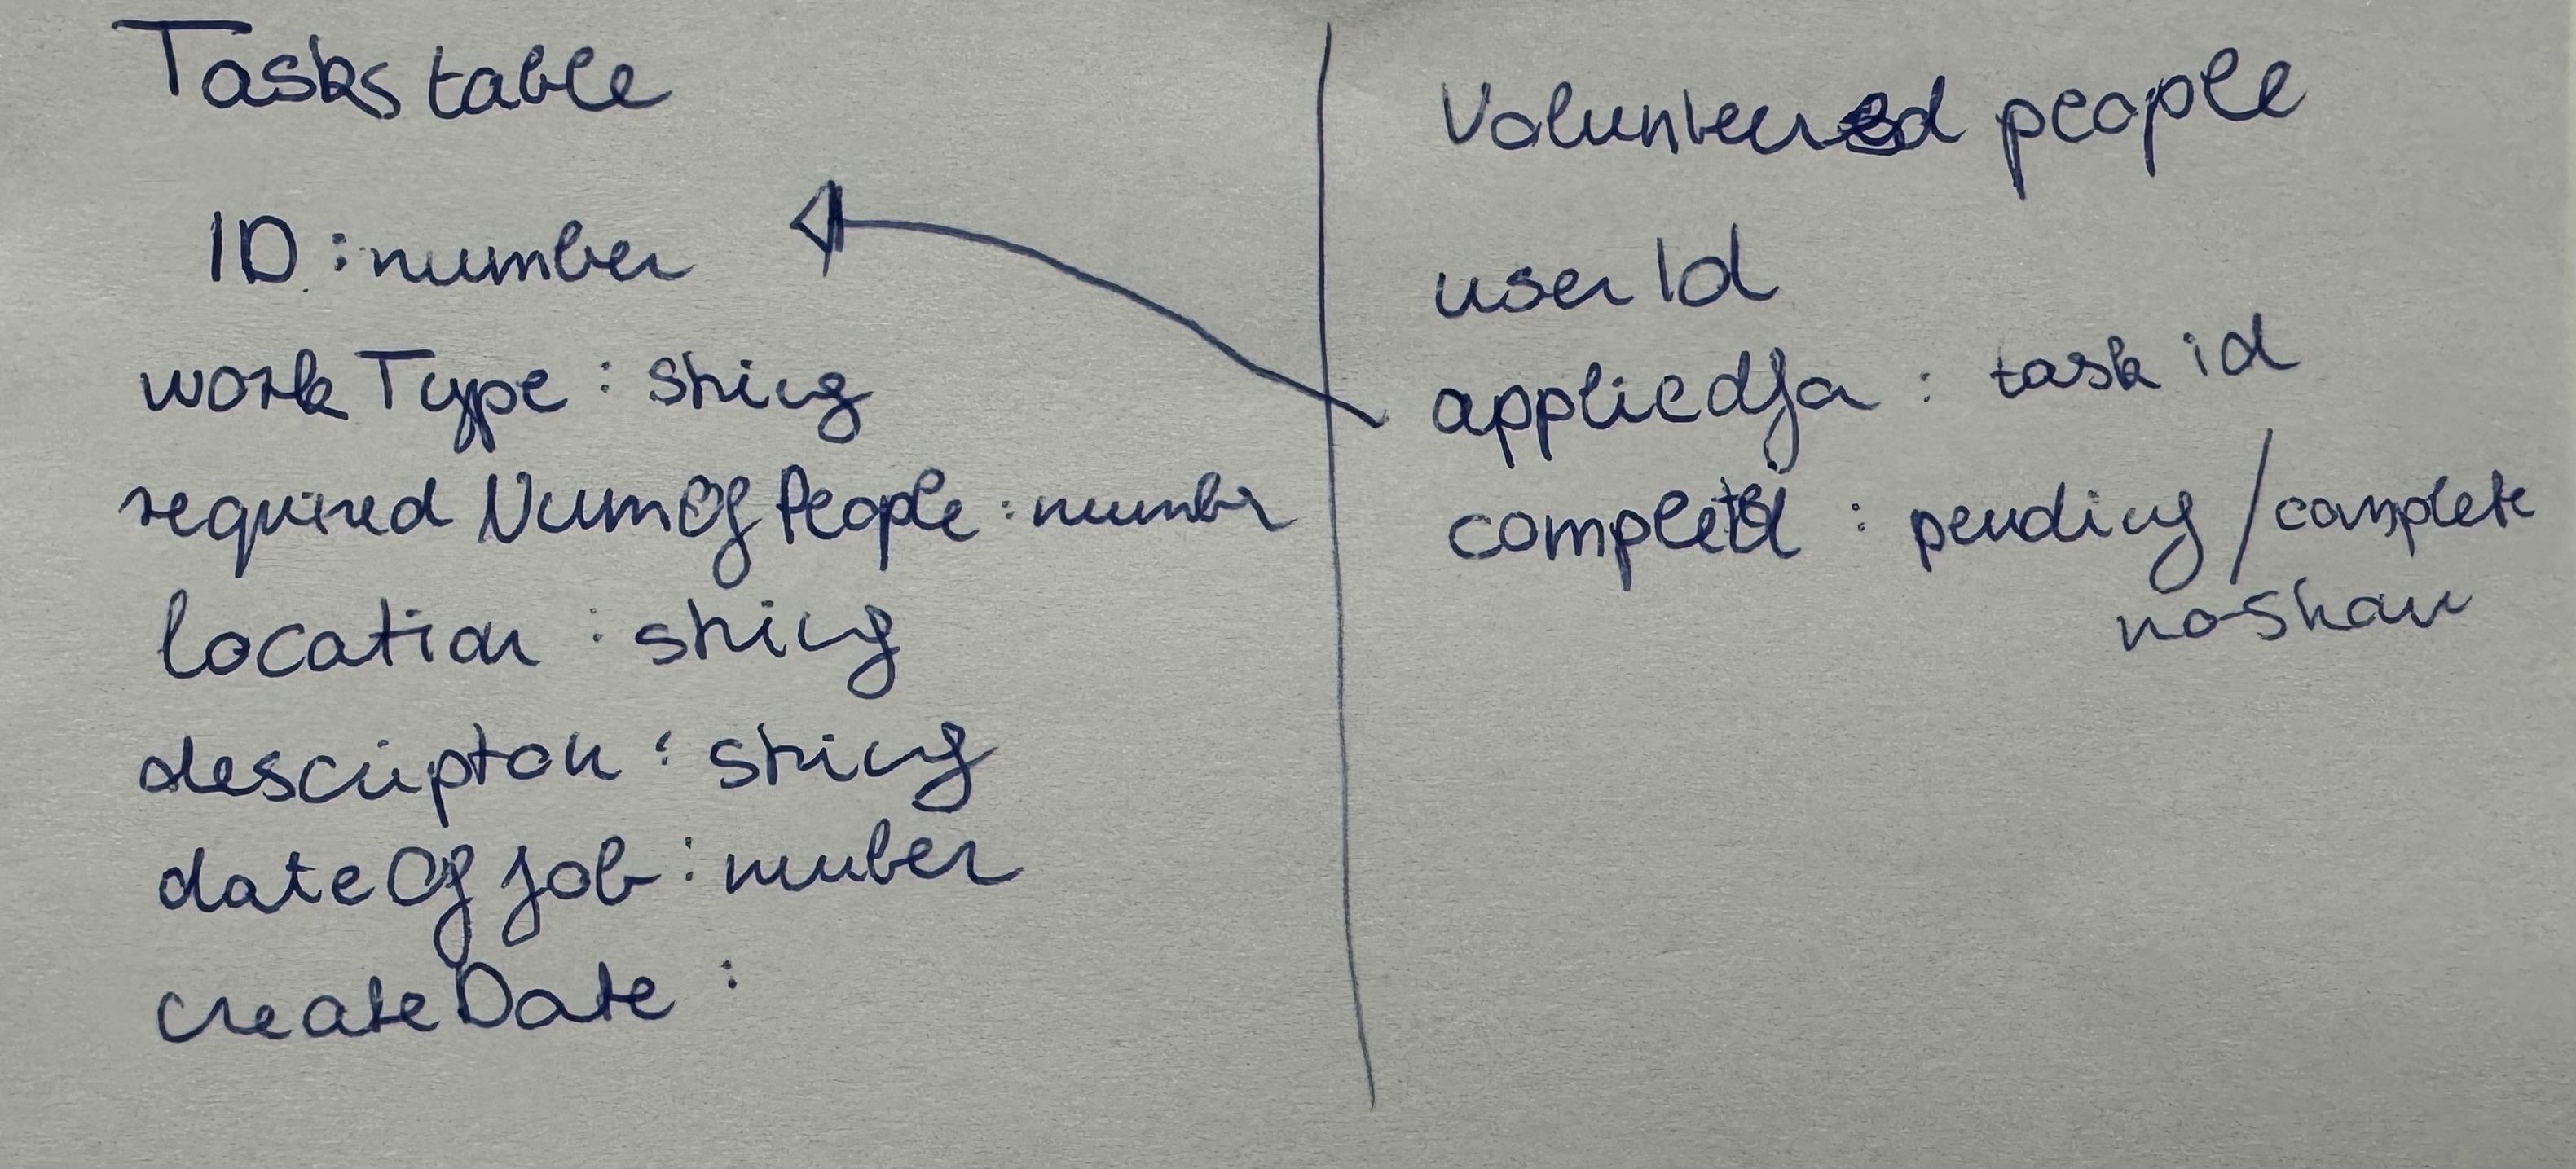 Tasks table
ID : number
workType : string
required NumOfPeople : number
location : string
description : string
dateOfJob : number
createDate :
Volunteered people
userId
appliedfor : task id
completed : pending / complete
no-show